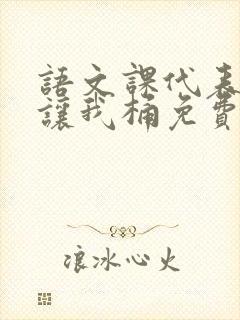 語文課代表
讓我桶免費
浪冰心火